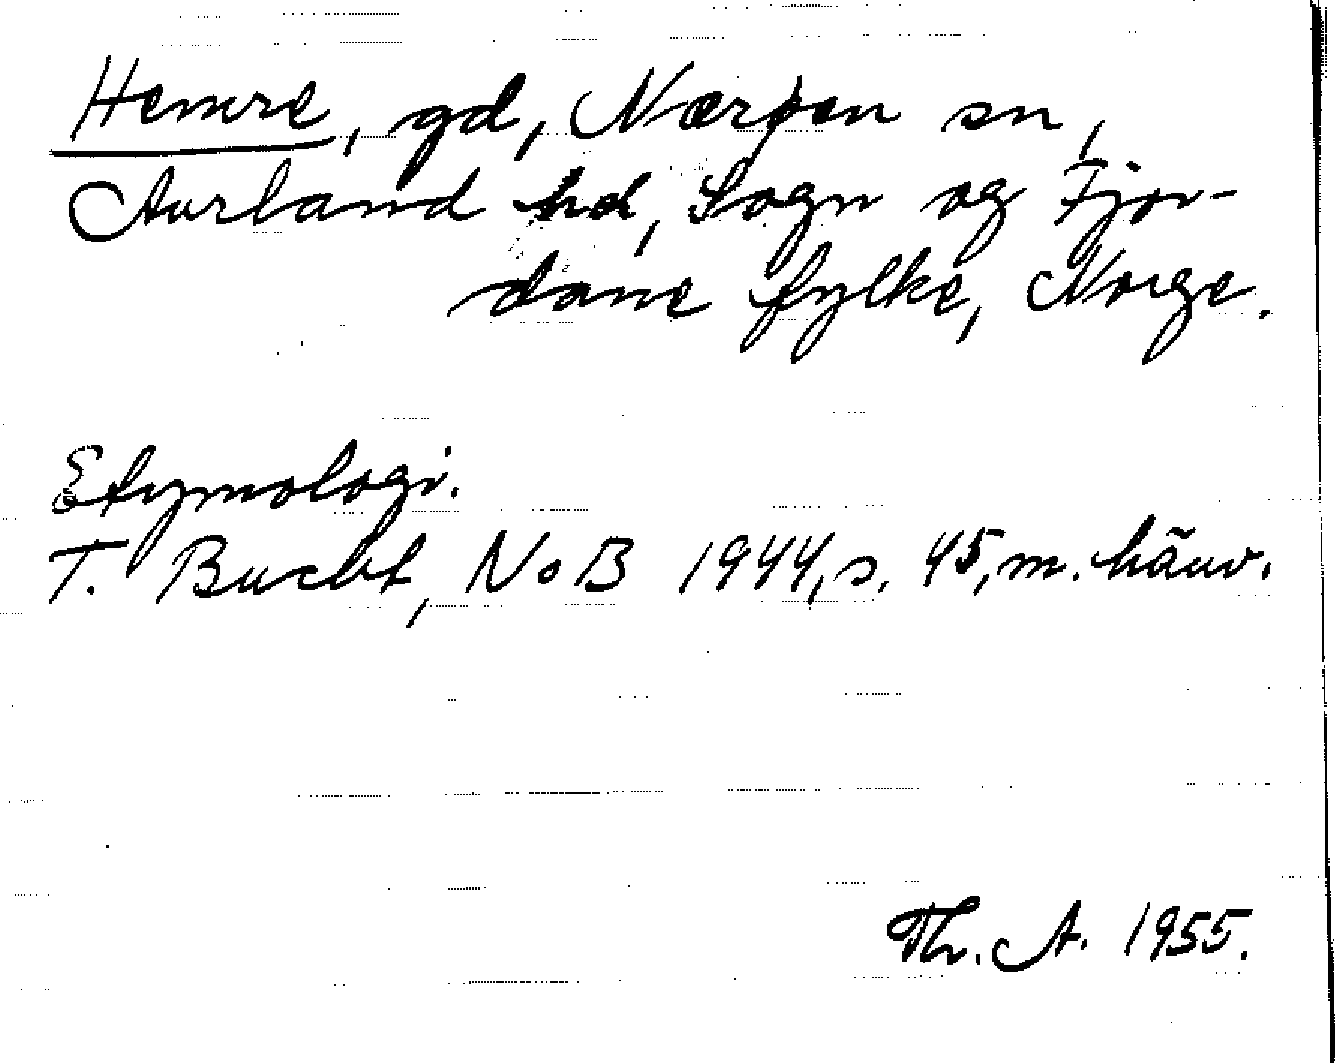 Hemre, gd, Nærøen sn,
Aurland hd, Sogn og Fjor-
dane fylke, Norge.
Etymologi.
T. Bucht, NoB 1944, s. 45, m. hänv.
Th. A. 1955.